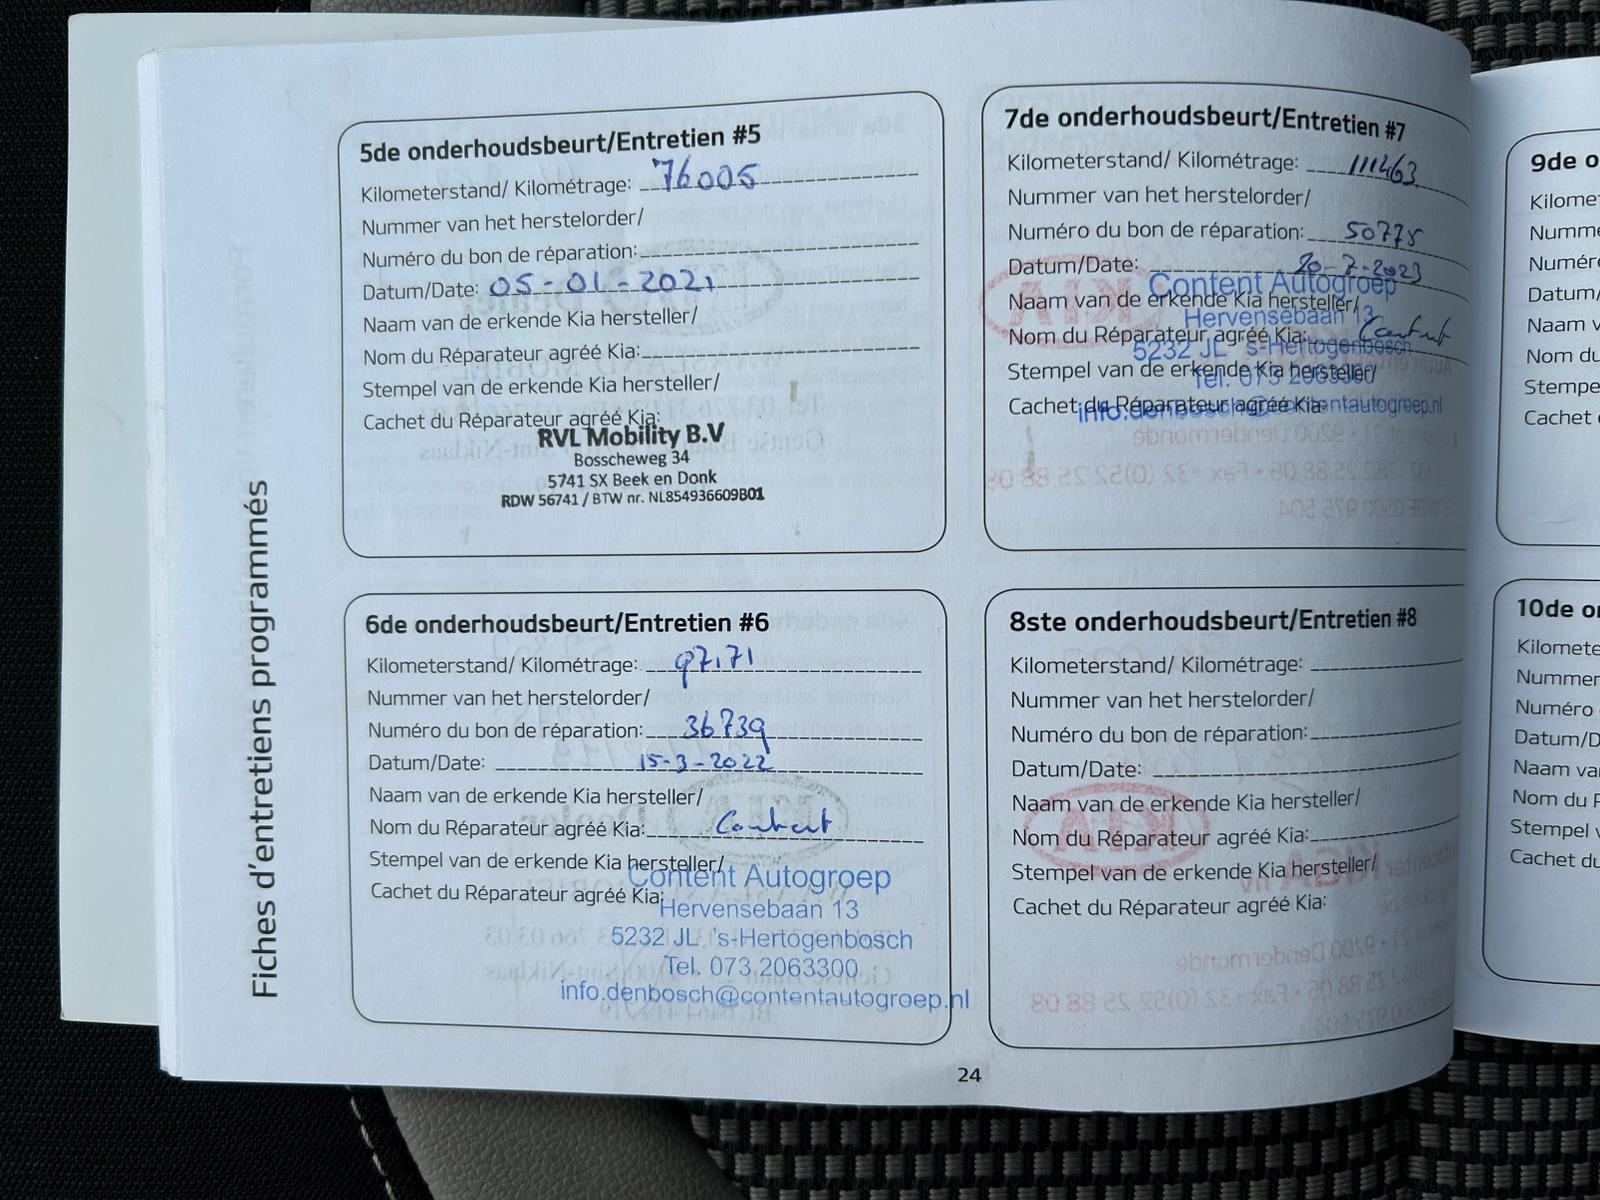 Fiches d'entretiens programmés
5de onderhoudsbeurt/Entretien #5
Kilometerstand/ Kilométrage: 76005
Nummer van het herstelorder/
Numéro du bon de réparation:
Datum/Date: 05-01-2021
Naam van de erkende Kia hersteller/
Nom du Réparateur agréé Kia:
Stempel van de erkende Kia hersteller/
Cachet du Réparateur agréé Kia:
RVL Mobility B.V
Bosscheweg 34
5741 SX Beek en Donk
RDW 56741 / BTW nr. NL854936609B01
6de onderhoudsbeurt/Entretien #6
Kilometerstand/ Kilométrage: 97171
Nummer van het herstelorder/
Numéro du bon de réparation: 36739
Datum/Date: 15-3-2022
Naam van de erkende Kia hersteller/
Nom du Réparateur agréé Kia: Content
Stempel van de erkende Kia hersteller/
Cachet du Réparateur agréé Kia:
Content Autogroep
Hervensebaan 13
5232 JL 's-Hertogenbosch
Tel. 073.2063300
info.denbosch@contentautogroep.nl
7de onderhoudsbeurt/Entretien #7
Kilometerstand/ Kilométrage: 111463
Nummer van het herstelorder/
Numéro du bon de réparation: 50775
Datum/Date: 20-7-2023
Naam van de erkende Kia hersteller/
Nom du Réparateur agréé Kia: Content
Stempel van de erkende Kia hersteller/
Cachet du Réparateur agréé Kia:
Content Autogroep
Hervensebaan 13
5232 JL 's-Hertogenbosch
Tel. 073 2063300
info.denbosch@contentautogroep.nl
8ste onderhoudsbeurt/Entretien #8
Kilometerstand/ Kilométrage:
Nummer van het herstelorder/
Numéro du bon de réparation:
Datum/Date:
Naam van de erkende Kia hersteller/
Nom du Réparateur agréé Kia:
Stempel van de erkende Kia hersteller/
Cachet du Réparateur agréé Kia:
24
9de o
Kilome
Numme
Numéro
Datum/
Naam v
Nom du
Stempe
Cachet
10de o
Kilomete
Nummer
Numéro
Datum/D
Naam va
Nom du R
Stempel v
Cachet du